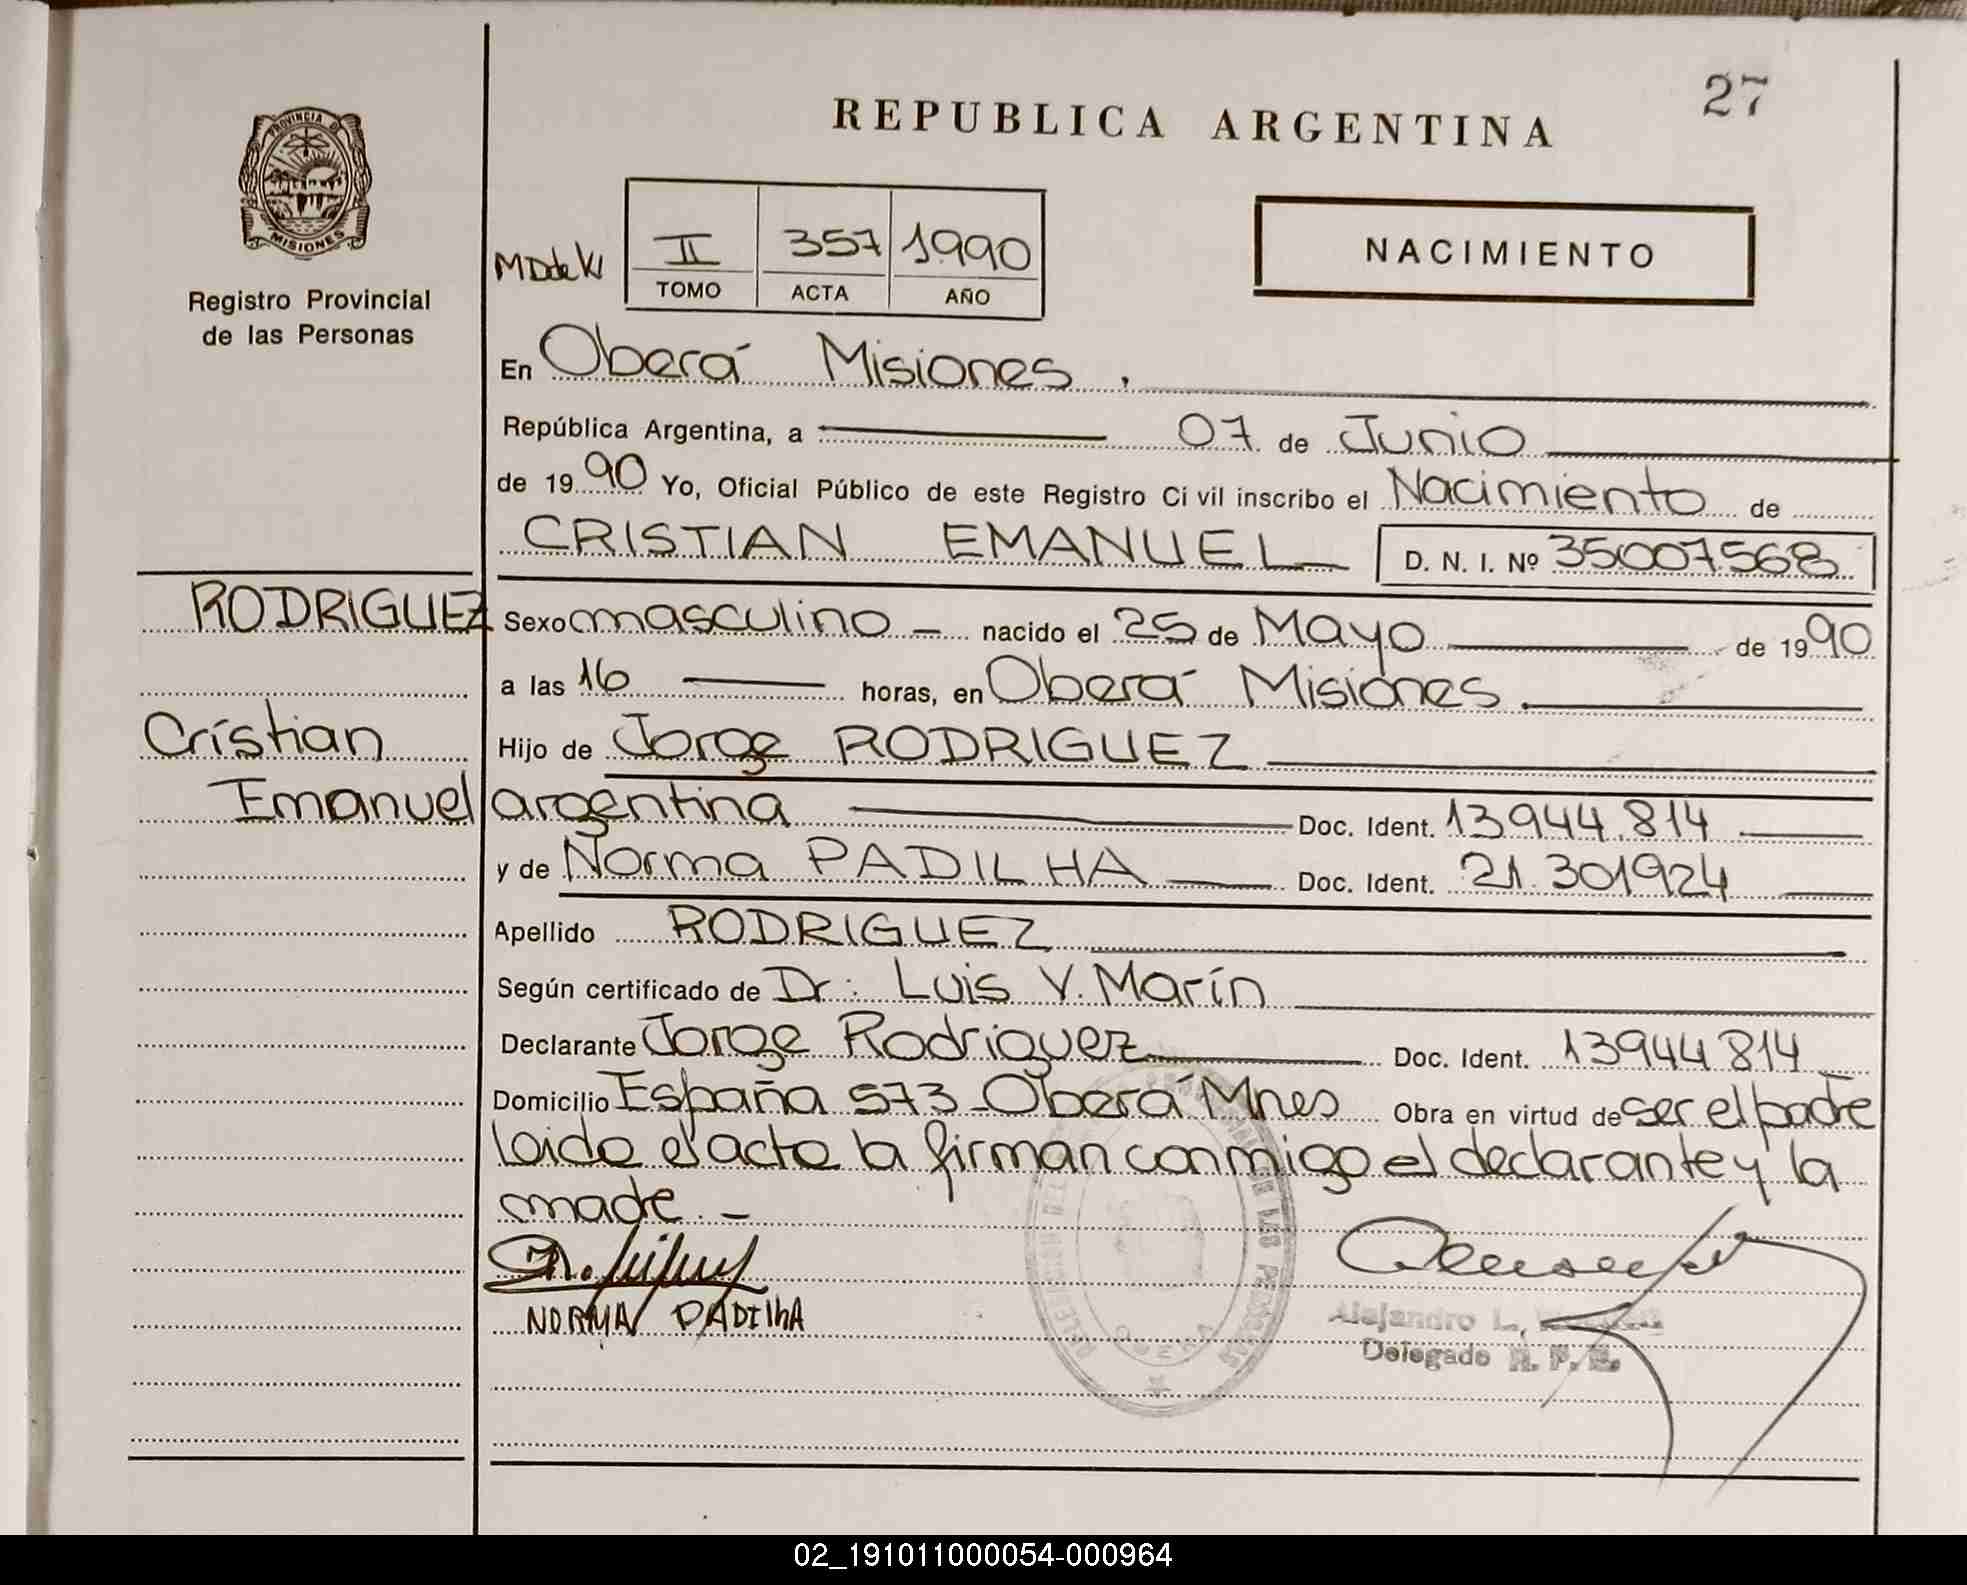 27
REPUBLICA ARGENTINA
PROVINCIA DE
MISIONES
Registro Provincial
de las Personas
II 357 1990
TOMO ACTA AÑO
NACIMIENTO
En Oberá Misiones.
República Argentina, a 07 de Junio
de 1990 Yo, Oficial Público de este Registro Ci vil inscribo el Nacimiento de
CRISTIAN EMANUEL D. N. I. Nº 35007568
RODRIGUEZ
Cristian
Emanuel
Sexo masculino - nacido el 25 de Mayo de 1990
a las 16 horas, en Oberá Misiones.
Hijo de Jorge RODRIGUEZ
argentina Doc. Ident. 13944.814
y de Norma PADILHA Doc. Ident. 21.301924
Apellido RODRIGUEZ
Según certificado de Dr: Luis V. Marín
Declarante Jorge Rodriguez Doc. Ident. 13944814
Domicilio España 573 - Oberá Mnes Obra en virtud de ser el padre
Leida el acta la firman conmigo el declarante y la
madre. -
NORMA PADILhA
Alejandro L.
Delegado R. P. P.
DE LAS PERSONAS
OBERA
02_191011000054-000964